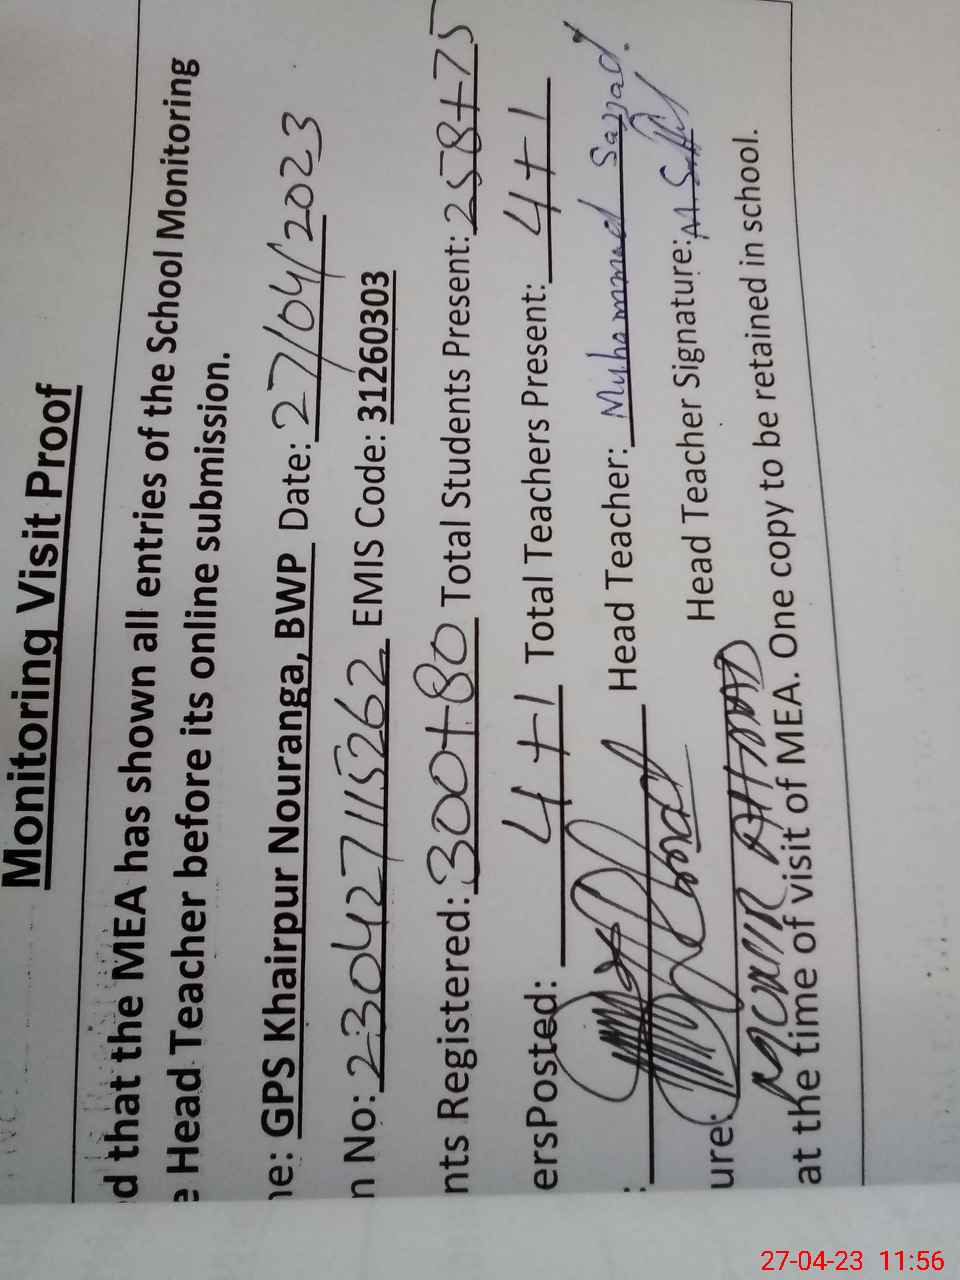 Monitoring Visit Proof
d that the MEA has shown all entries of the School Monitoring
e Head Teacher before its online submission.
ne: GPS Khairpur Nouranga, BWP Date: 27/04/2023
n No: 230427115262 EMIS Code: 31260303
nts Registered: 300+80 Total Students Present: 258+75
ersPosted: 4+1 Total Teachers Present: 4+1
: Head Teacher: Muhammad Sajjad.
ure: Head Teacher Signature:
at the time of visit of MEA. One copy to be retained in school.
27-04-23 11:56